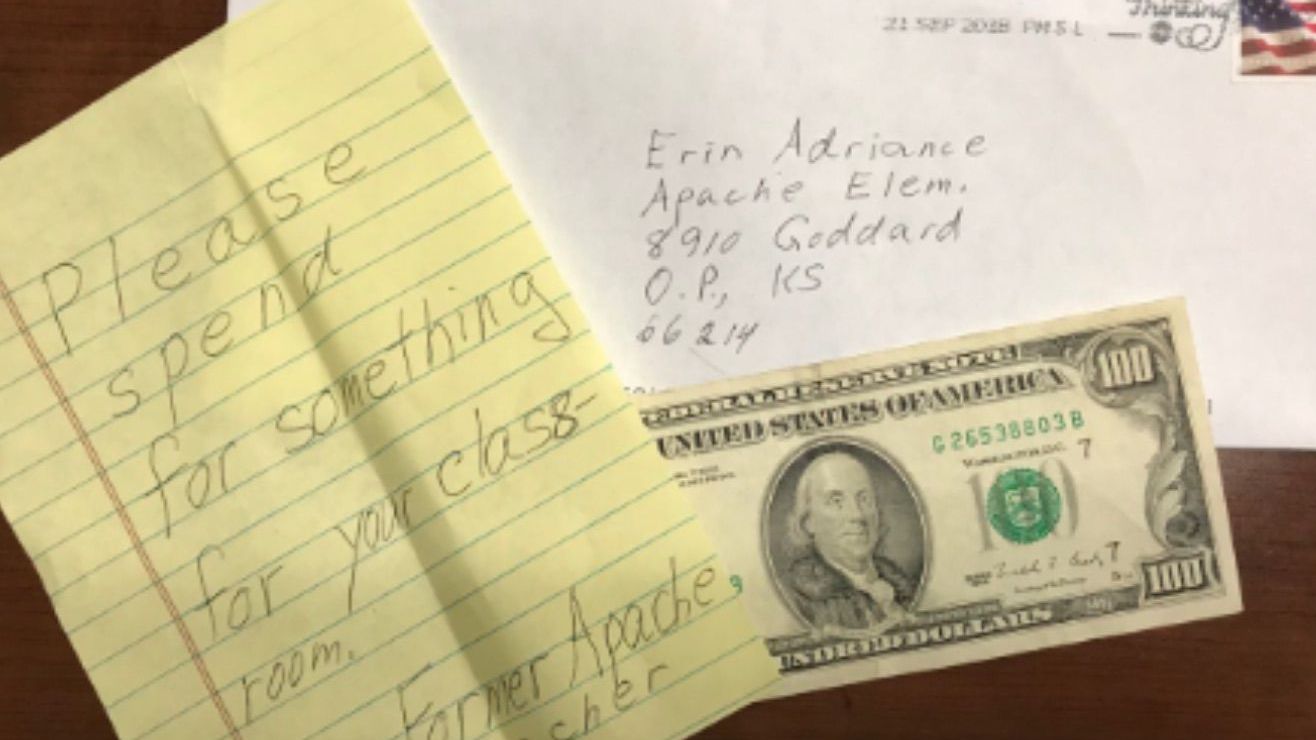 Please
spend
for something
for your class-
room.
Former Apache
cher
21 SEP 2018 PM 5 L
Thinking
Erin Adriance
Apache Elem.
8910 Goddard
O.P., KS
66214
FEDERAL RESERVE NOTE
UNITED STATES OF AMERICA
100
G 26538803 B
WASHINGTON, D.C.
7
100
7
100